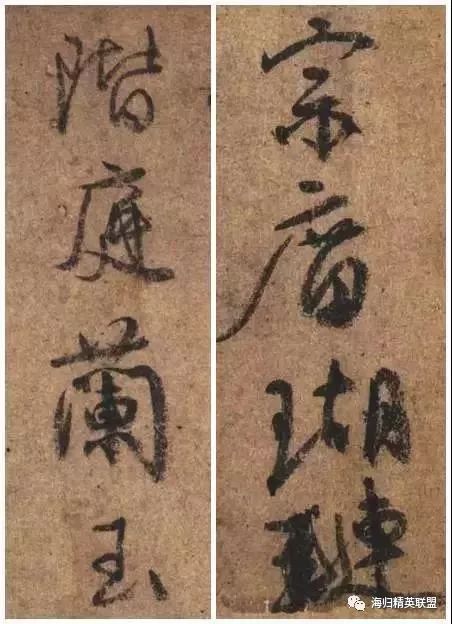 宗庿瑚璉
階庭蘭玉
海归精英联盟